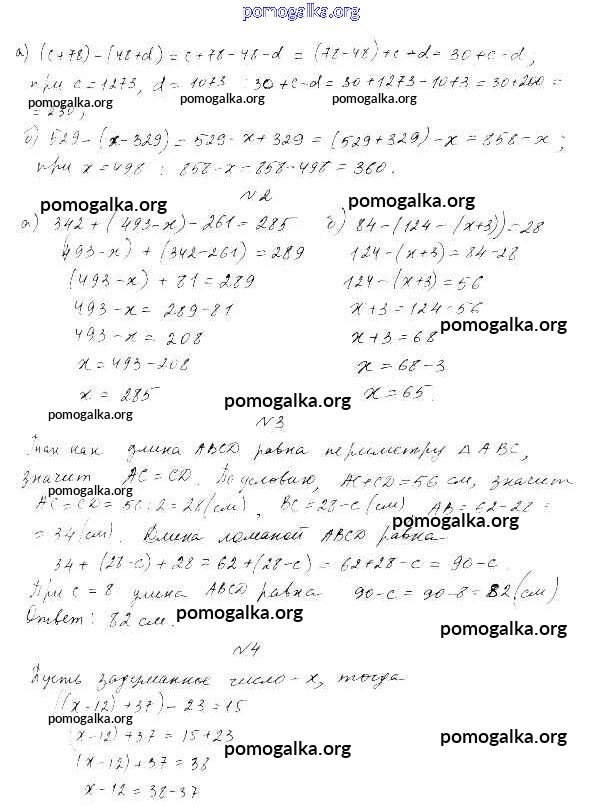 pomogalka.org
а) (c+78)-(48+d)=c+78-48-d=(78-48)+c+d=30+c-d;
при c=1273, d=1073 : 30+c-d=30+1273-1073=30+200=
pomogalka.org pomogalka.org pomogalka.org
=230;
б) 529-(x-329)=529-x+329=(529+329)-x=858-x;
при x=498 : 858-x=858-498=360.
pomogalka.org N2 pomogalka.org
а) 342+(493-x)-261=285 б) 84-(124-(x+3))=28
(493-x)+(342-261)=289 124-(x+3)=84-28
(493-x)+81=289 124-(x+3)=56
493-x=289-81 x+3=124-56
493-x=208 x+3=68 pomogalka.org
x=493-208 x=68-3
x=285 x=65.
pomogalka.org pomogalka.org
N3
Так как длина ABCD равна периметру △ABC,
значит AC=CD. По условию, AC+CD=56 см, значит
pomogalka.org
AC=CD=56:2=28(см), BC=28-c(см) AB=62-28=
pomogalka.org
=34(см). Длина ломаной ABCD равна
34+(28-c)+28=62+(28-c)=62+28-c=90-c.
При c=8 длина ABCD равна 90-c=90-8=82(см)
Ответ: 82 см. pomogalka.org pomogalka.org
N4
Пусть задуманное число - x, тогда
((x-12)+37)-23=15
pomogalka.org
(x-12)+37=15+23
pomogalka.org pomogalka.org
(x-12)+37=38
x-12=38-37
pomogalka.org